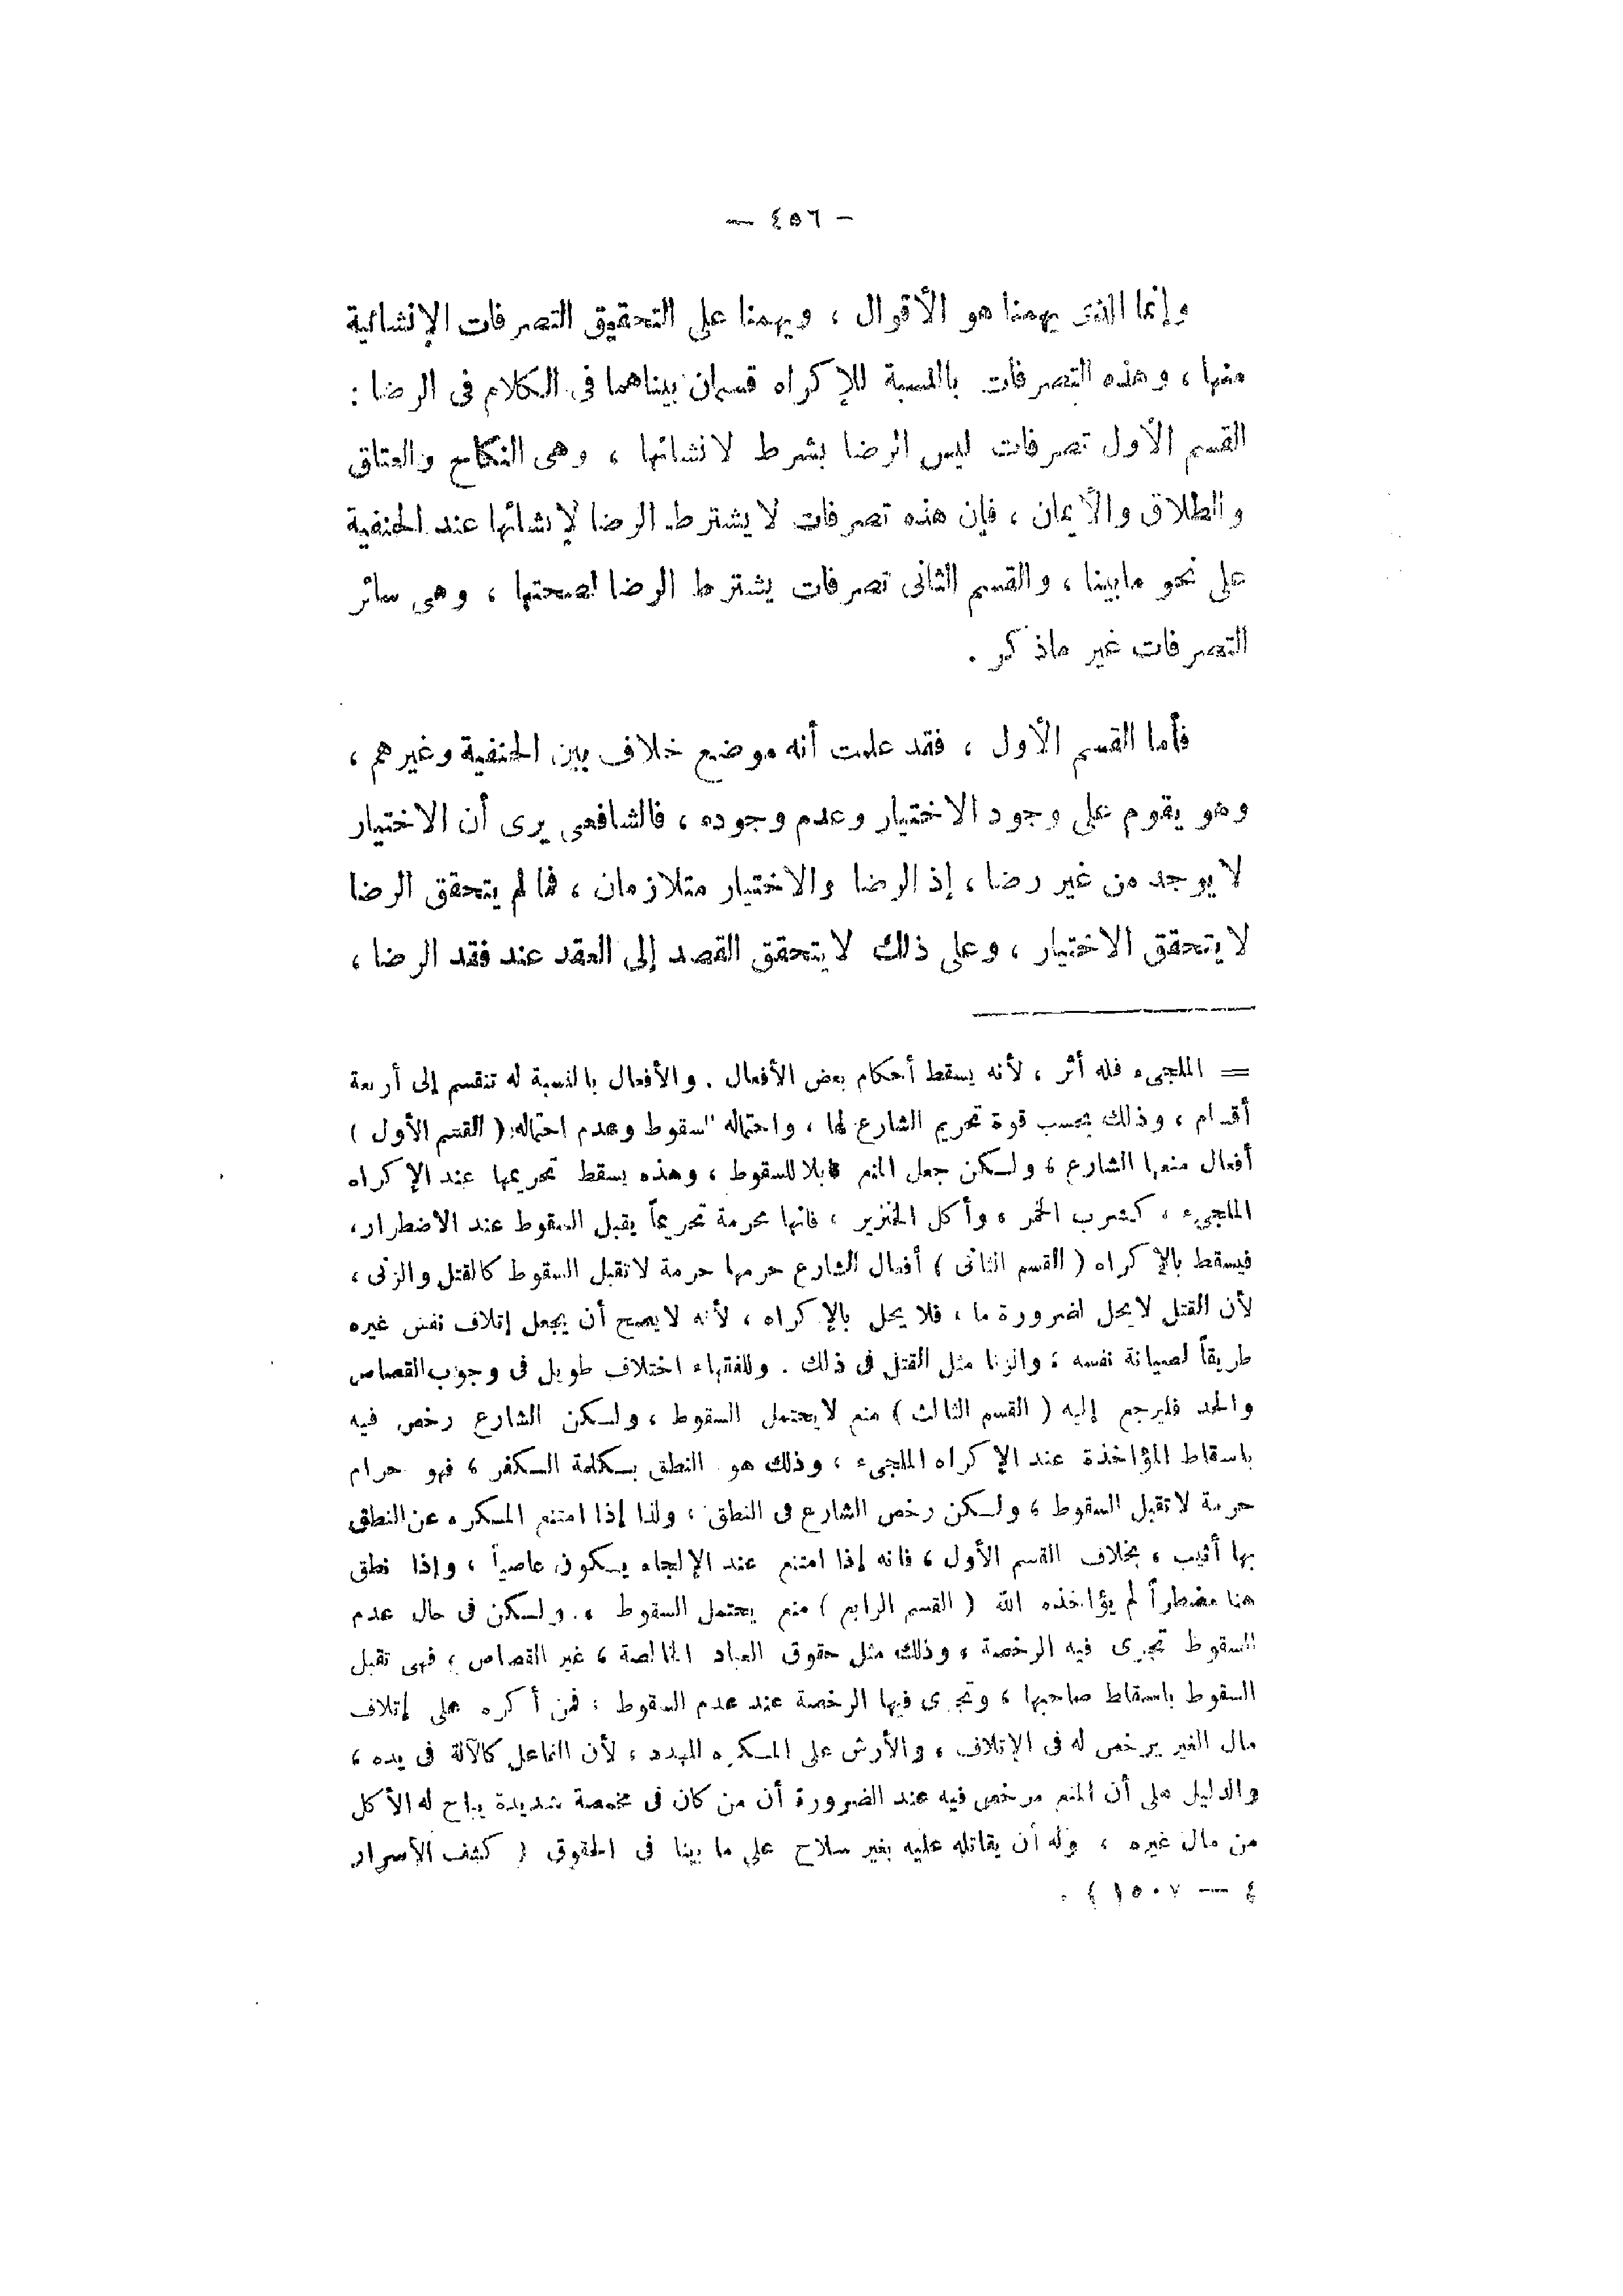 — ٤٥٦ —
وإنما الذى يهمنا هو الأقوال ، ويهمنا على التحقيق التصرفات الإنشائية
منها ، وهذه التصرفات بالنسبة للإكراه قسمان بيناهما فى الكلام فى الرضا :
القسم الأول تصرفات ليس الرضا بشرط لانشائها ، وهى النكاح والعتاق
والطلاق والأيمان ، فإن هذه تصرفات لا يشترط الرضا لإنشائها عند الحنفية
على نحو ما بينا ، والقسم الثانى تصرفات يشترط الرضا لصحتها ، وهى سائر
التصرفات غير ماذكر .
فأما القسم الأول ، فقد علمت أنه موضع خلاف بين الحنفية وغيرهم ،
وهو يقوم على وجود الاختيار وعدم وجوده ، فالشافعى يرى أن الاختيار
لا يوجد من غير رضا ، إذ الرضا والاختيار متلازمان ، فما لم يتحقق الرضا
لا يتحقق الاختيار ، وعلى ذلك لا يتحقق القصد إلى العقد عند فقد الرضا ،
= الملجىء فله أثر ، لأنه يسقط أحكام بعض الأفعال . والأفعال بالنسبة له تنقسم إلى أربعة
أقسام ، وذلك بحسب قوة تحريم الشارع لها ، واحتماله السقوط وعدم احتماله: ( القسم الأول )
أفعال منعها الشارع ، ولكن جعل المنع قابلا للسقوط ، وهذه يسقط تحريمها عند الإكراه
الملجىء ، كشرب الخمر ، وأكل الخنزير ، فانها محرمة تحريماً يقبل السقوط عند الاضطرار ،
فيسقط بالإكراه ( القسم الثانى ) أفعال الشارع حرمها حرمة لاتقبل السقوط كالقتل والزنى ،
لأن القتل لا يحل لضرورة ما ، فلا يحل بالإكراه ، لأنه لا يصح أن يجعل إتلاف نفس غيره
طريقاً لصيانة نفسه ، والزنا مثل القتل فى ذلك . وللفقهاء اختلاف طويل فى وجوب القصاص
والحد فليرجع إليه ( القسم الثالث ) منع لا يحتمل السقوط ، ولكن الشارع رخص فيه
باسقاط المؤاخذة عند الإكراه الملجىء ، وذلك هو النطق بكلمة الكفر ، فهو حرام
حرمة لا تقبل السقوط ، ولكن رخص الشارع فى النطق ، ولذا إذا امتنع المكره عن النطق
بها أثيب ، بخلاف القسم الأول ، فانه إذا امتنع عند الإلجاء يكون عاصياً ، وإذا نطق
هنا مضطراً لم يؤاخذه الله ( القسم الرابع ) منع يحتمل السقوط ، ولكن فى حال عدم
السقوط تجرى فيه الرخصة ، وذلك مثل حقوق العباد الخالصة ، غير القصاص ، فهى تقبل
السقوط باسقاط صاحبها ، وتجرى فيها الرخصة عند عدم السقوط ، فمن أكره على إتلاف
مال الغير يرخص له فى الإتلاف ، والأرش على المكره المهدد ، لأن الفاعل كالآلة فى يده ،
والدليل على أن المنع مرخص فيه عند الضرورة أن من كان فى مخمصة شديدة يباح له الأكل
من مال غيره ، وله أن يقاتله عليه بغير سلاح على ما بينا فى الحقوق ( كشف الأسرار
٤ — ١٥٠٧ ) .